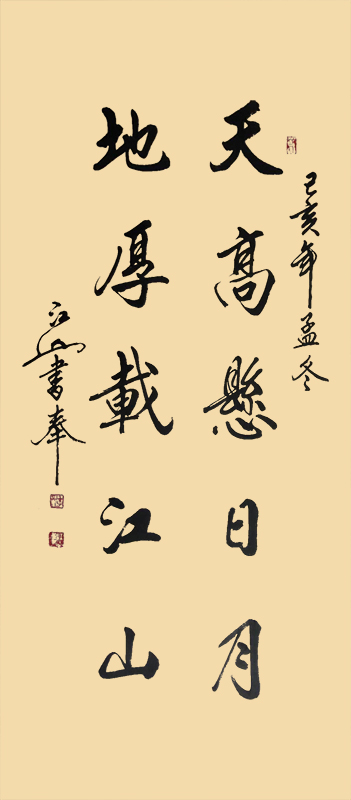 己亥年孟冬
天高懸日月
地厚載江山
江山書奉